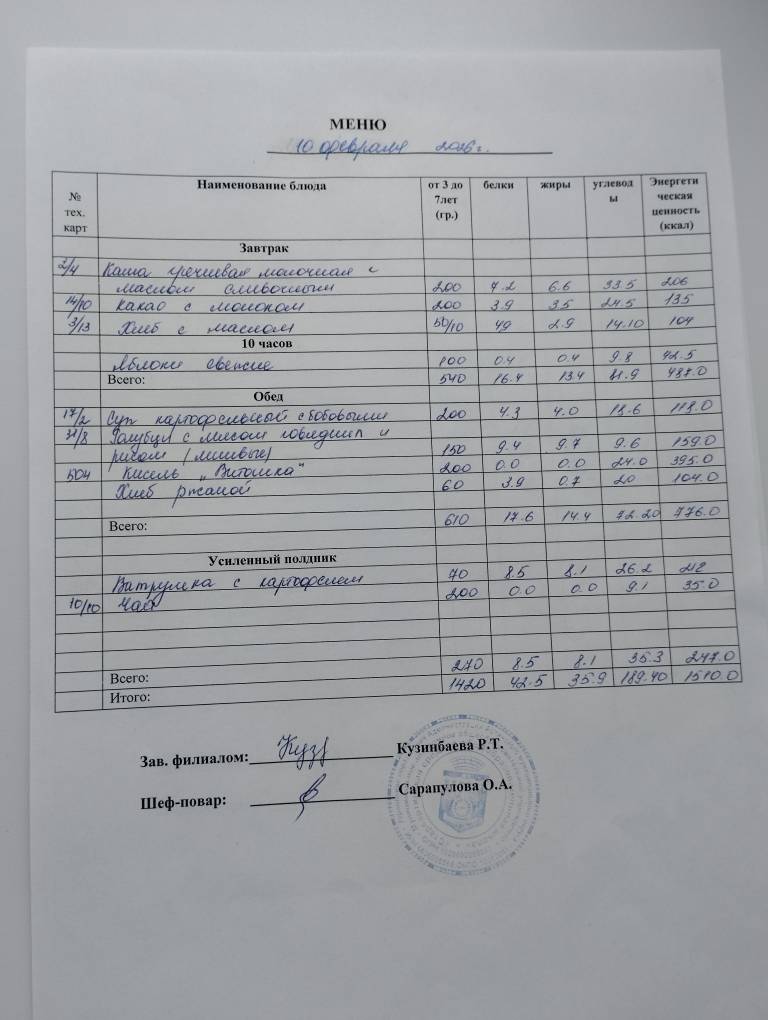 МЕНЮ
10 февраля 2026 г.
№ тех. карт Наименование блюда от 3 до 7лет (гр.) белки жиры углеводы Энергетическая ценность (ккал)
Завтрак
2/4 Каша гречневая молочная с
маслом сливочным 200 7.2 6.6 33.5 206
14/10 Какао с молоком 200 3.9 3.5 24.5 135
3/13 Хлеб с маслом 50/10 49 2.9 14.10 104
10 часов
Яблоки свежие 100 0.4 0.4 9.8 42.5
Всего: 540 16.4 13.4 81.9 487.0
Обед
17/2 Суп картофельный с бобовыми 200 4.3 4.0 18.6 118.0
31/8 Голубцы с мясом говядины и
рисом (ленивые) 150 9.4 9.7 9.6 159.0
504 Кисель "Витошка" 200 0.0 0.0 24.0 395.0
Хлеб ржаной 60 3.9 0.7 20 104.0
Всего: 610 17.6 14.4 72.20 776.0
Усиленный полдник
Ватрушка с картофелем 70 8.5 8.1 26.2 212
10/10 Чай 200 0.0 0.0 9.1 35.0
Всего: 270 8.5 8.1 35.3 247.0
Итого: 1420 42.5 35.9 189.40 1510.0
Зав. филиалом: Кузинбаева Р.Т.
Шеф-повар: Сарапулова О.А.